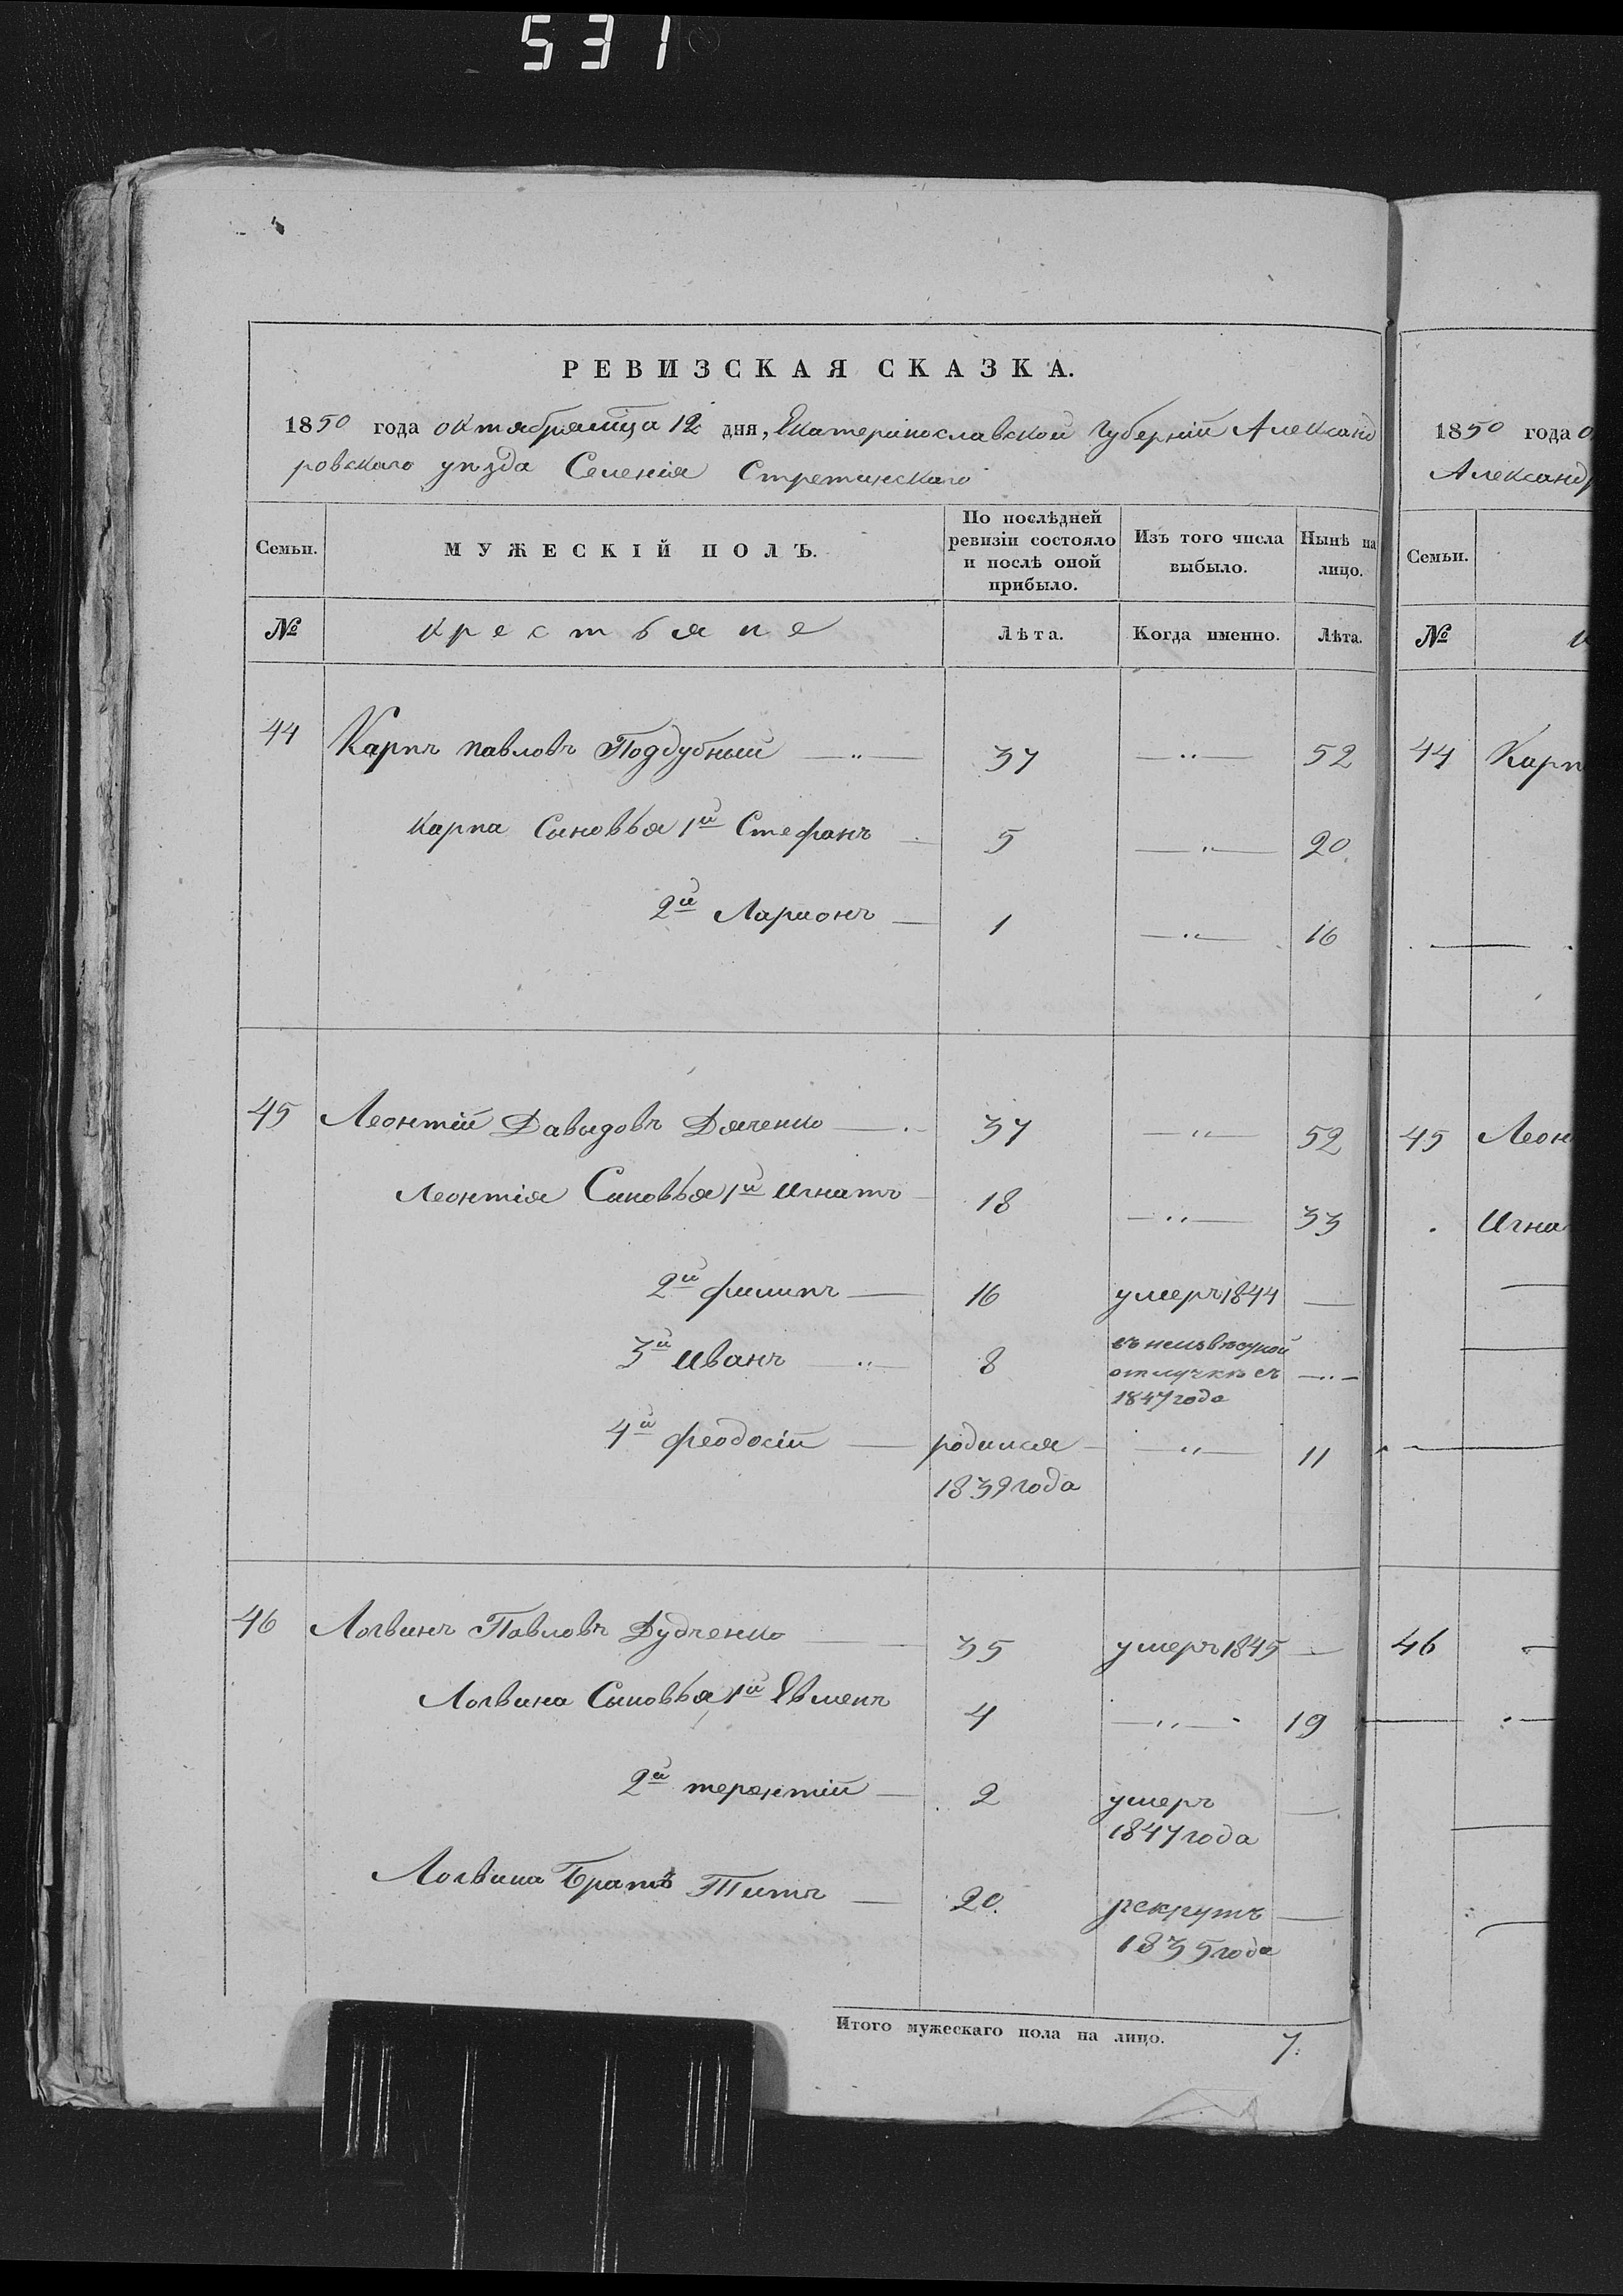 531
РЕВИЗСКАЯ СКАЗКА.
1850 года октября мца 12 дня, Екатеринославской Губерніи Александ
ровскаго уѣзда Селенія Стретинскаго
Семьи. МУЖЕСКІЙ ПОЛЪ. По послѣдней ревизіи состояло и послѣ оной прибыло. Изъ того числа выбыло. Нынѣ на лицо.
№ крестьяне Лѣта. Когда именно. Лѣта.
44 Карпъ Павловъ Поддубный 37 52
Карпа Сыновья 1й Стефанъ 5 20
2й Ларионъ 1 16
45 Леонтій Давыдовъ Дяченко 37 52
Леонтія Сыновья 1й Игнатъ 18 33
2й Филипъ 16 умеръ 1844
3й Иванъ 8 въ неизвѣсной
отлучкѣ съ
1847 года
4й Феодосій родился 11
1839 года
46 Логвинъ Павловъ Дудченко 35 умеръ 1845
Логвина Сыновья 1й Евменъ 4 19
2й терентій 2 умеръ
1847 года
Логвина Братъ Титъ 20 рекрутъ
1835 года
Итого мужескаго пола на лицо. 7.
1850 года о
Александр
Семьи.
№
44 Карп
45 Леон
Игна
46